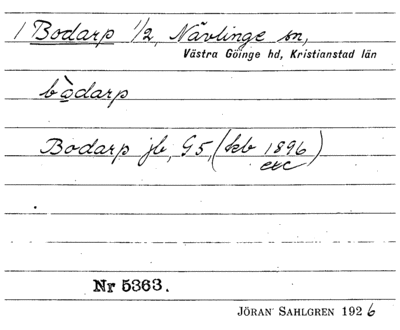 1 Bodarp 1/2, Nävlinge sn,
Västra Göinge hd, Kristianstad län
bòdarp
Bodarp jb, G5, (kb 1896)
etc
Nr 5363.
JÖRAN SAHLGREN 1926